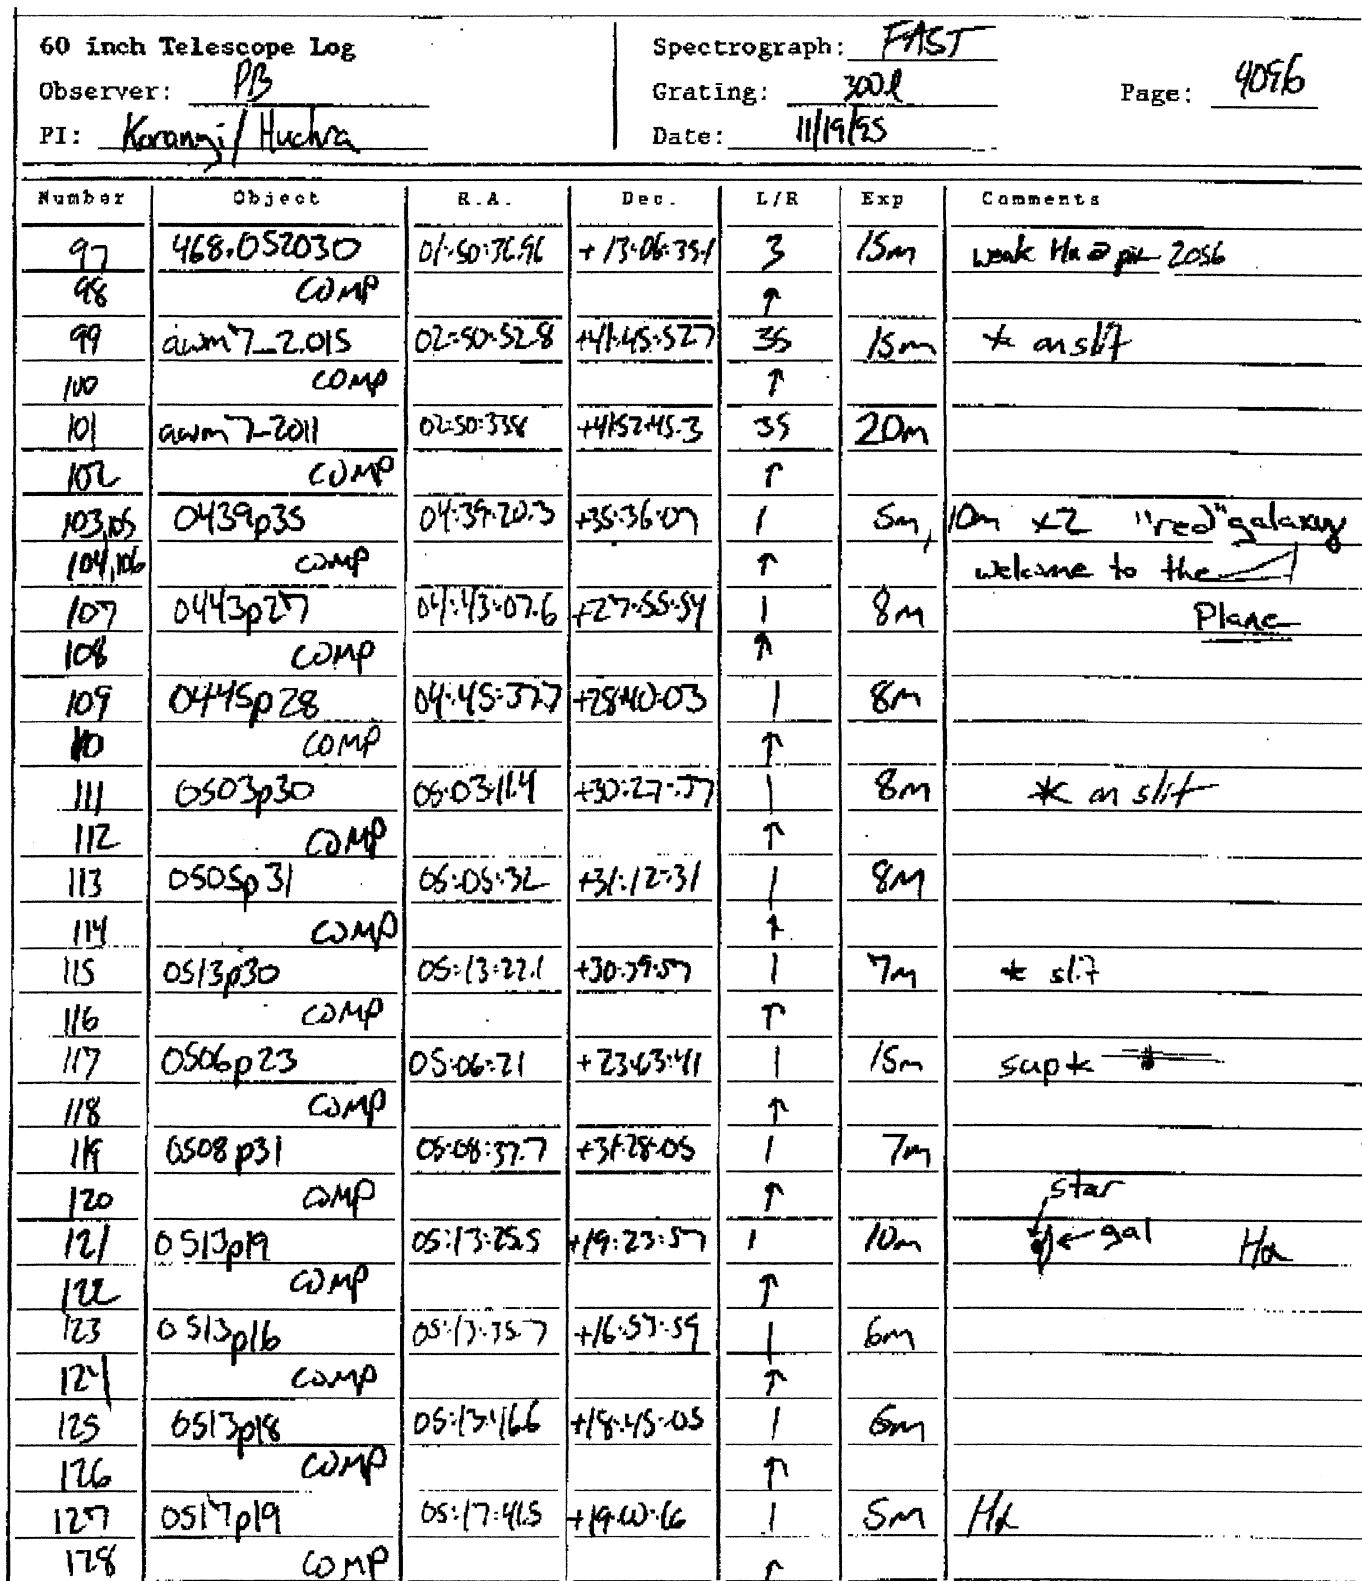 60 inch Telescope Log Spectrograph: FAST
Observer: PB Grating: 300l Page: 4096
PI: Koranyi/Huchra Date: 11/19/95
Number Object R.A. Dec. L/R Exp Comments
97 468.052030 01:50:36.96 +13:06:35.1 3 15m weak Hα @ pix 2056
98 COMP ↑
99 awm7_2.015 02:50:52.8 +41:45:52.7 35 15m * on slit
100 COMP ↑
101 awm7_2011 02:50:33.8 +41:52:45.3 35 20m
102 COMP ↑
103,105 0439p35 04:39:20.3 +35:36:07 1 5m, 10m x2 "red" galaxy
104,106 COMP ↑ welcome to the
107 0443p27 04:43:07.6 +27:55:54 1 8m Plane
108 COMP ↑
109 0445p28 04:45:37.7 +28:40:03 1 8m
110 COMP ↑
111 0503p30 05:03:11.4 +30:27:37 1 8m * on slit
112 COMP ↑
113 0505p31 05:05:32 +31:12:31 1 8m
114 COMP ↑
115 0513p30 05:13:22.1 +30:39:57 1 7m * slit
116 COMP ↑
117 0506p23 05:06:21 1 15m
118 COMP ↑
119 0508p31 05:08:37.7 +31:28:05 1 7m
120 COMP ↑ star
121 0513p19 05:13:25.5 +19:23:57 1 10m ← gal Hα
122 COMP ↑
123 0513p16 05:13:35.7 +16:57:59 1 6m
124 COMP ↑
125 0513p18 05:13:46.6 +18:45:05 1 6m
126 COMP ↑
127 0517p19 05:17:41.5 +19:40:16 1 5m Hα
128 COMP ↑